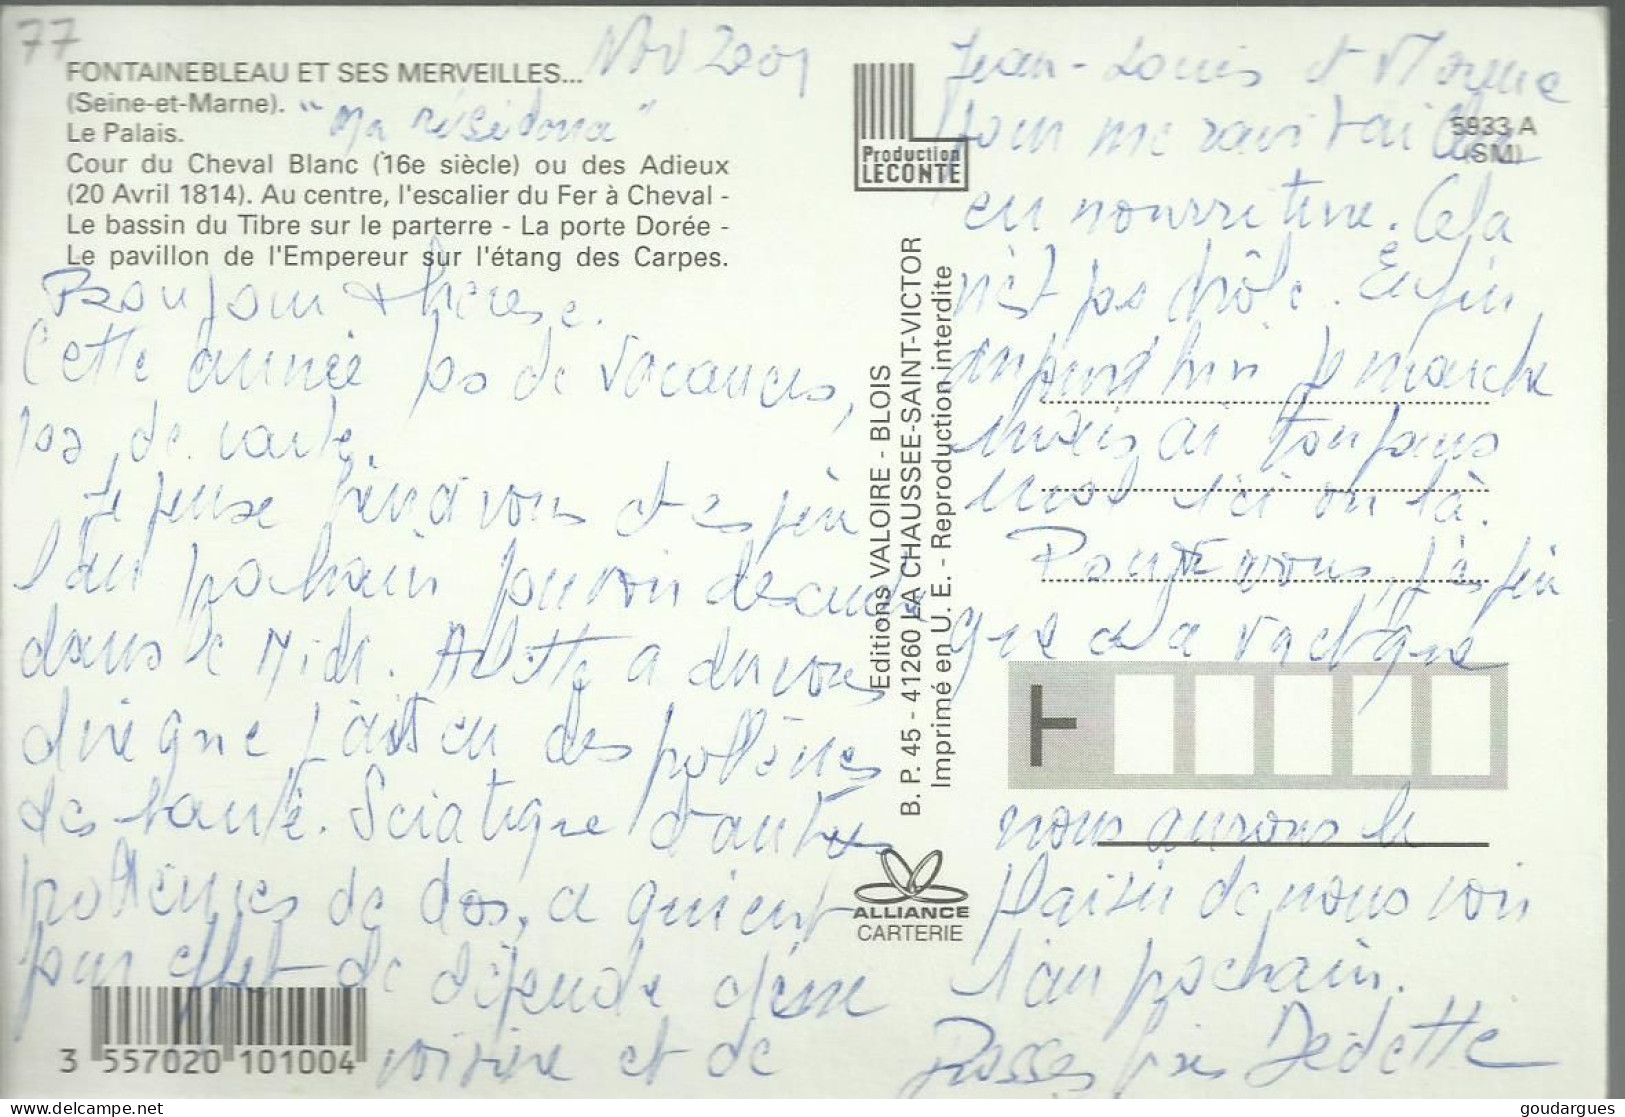 77
Nov 2001
FONTAINEBLEAU ET SES MERVEILLES...
(Seine-et-Marne).
"Ma résidence"
Le Palais.
Cour du Cheval Blanc (16e siècle) ou des Adieux
(20 Avril 1814). Au centre, l'escalier du Fer à Cheval -
Le bassin du Tibre sur le parterre - La porte Dorée -
Le pavillon de l'Empereur sur l'étang des Carpes.
Bonjour Thérèse.
Cette année pas de vacances,
pas de carte.
Je pense bien à vous et espère
l'an prochain pouvoir descendre
dans le Midi. Arlette a du vous
dire que j'ai eu des problèmes
de santé. Sciatique d'autres
problèmes de dos, ce qui eut
pour effet de dépendre d'une
voisine et de
3 557020 101004
Production
LECONTE
5933 A
(SM)
Editions VALOIRE - BLOIS
B. P. 45 - 41260 LA CHAUSSEE-SAINT-VICTOR
Imprimé en U. E. - Reproduction interdite
ALLIANCE
CARTERIE
Jean-Louis et
pour me ravitailler
en nourriture. Cela
n'est pas drôle. Enfin
aujourd'hui je marche
mais ai toujours
mal ici ou là.
Pour vous, j'espère
que cela va et que
nous aurons le
plaisir de nous voir
l'an prochain.
Grosses bises Dédette
goudargues